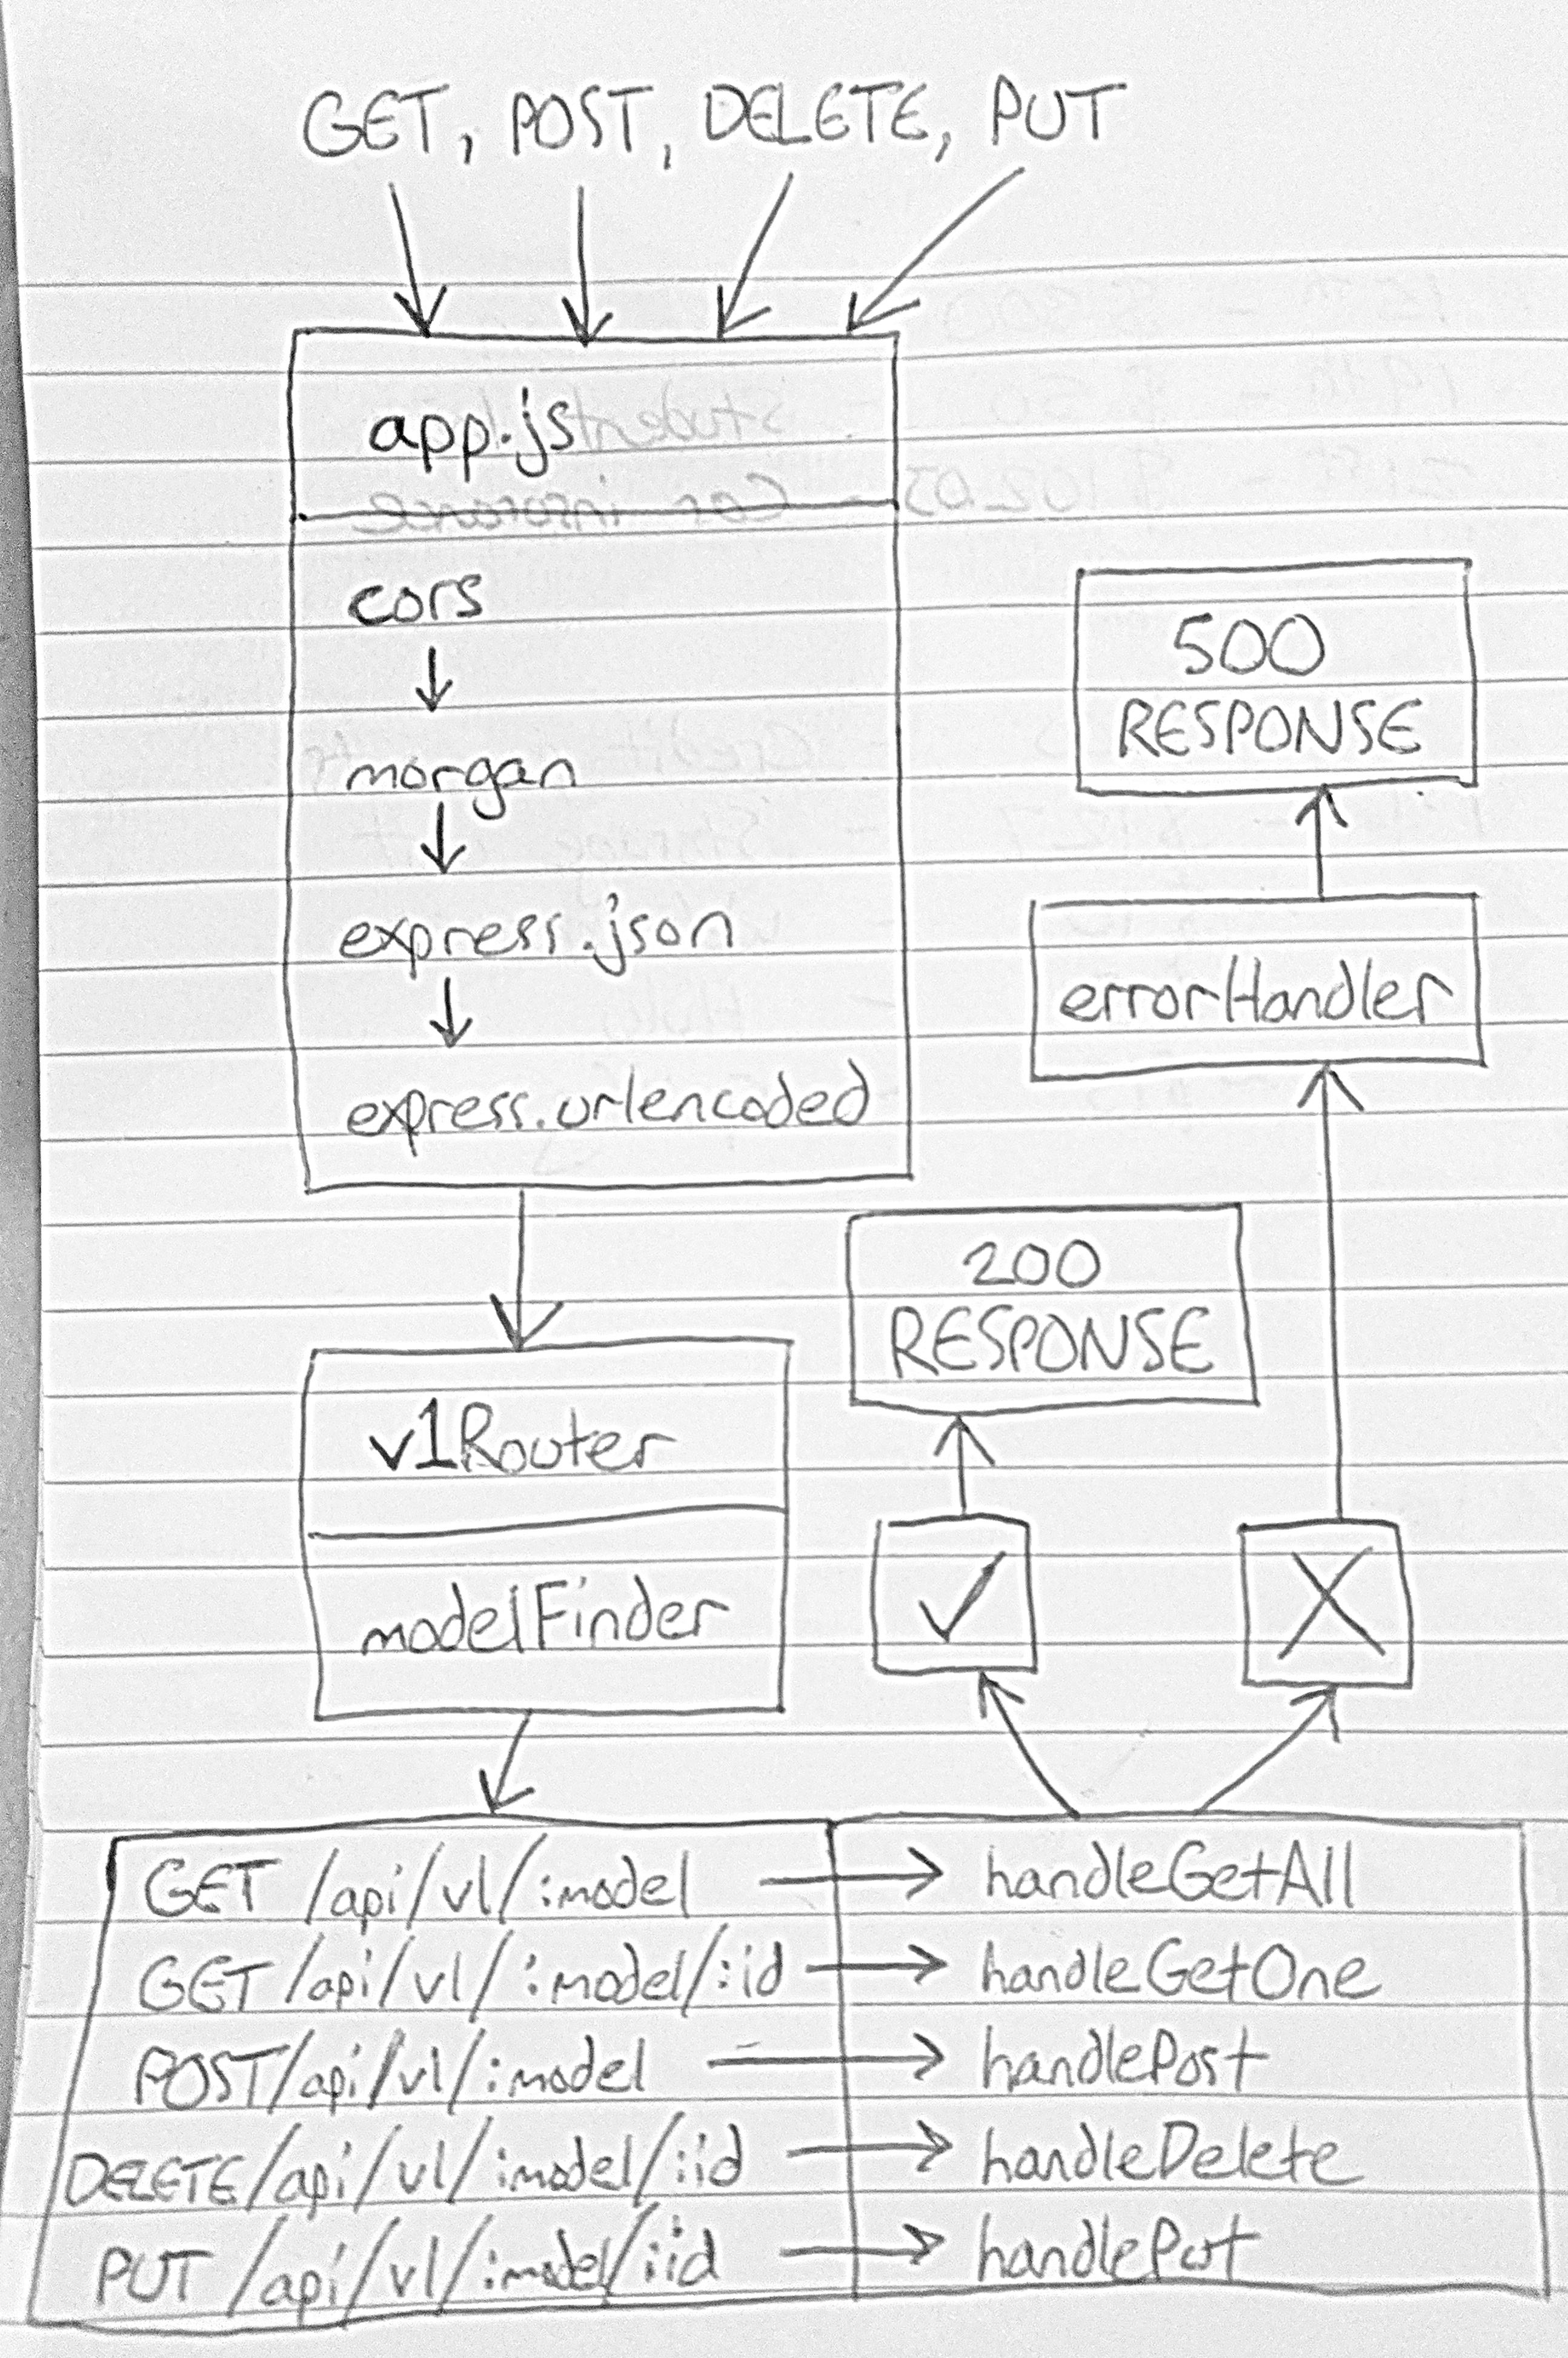 GET, POST, DELETE, PUT
app.js
cors
morgan
express.json
express.urlencoded
500
RESPONSE
errorHandler
200
RESPONSE
v1Router
modelFinder
GET /api/v1/:model → handleGetAll
GET /api/v1/:model/:id → handleGetOne
POST /api/v1/:model → handlePost
DELETE /api/v1/:model/:id → handleDelete
PUT /api/v1/:model/:id → handlePut